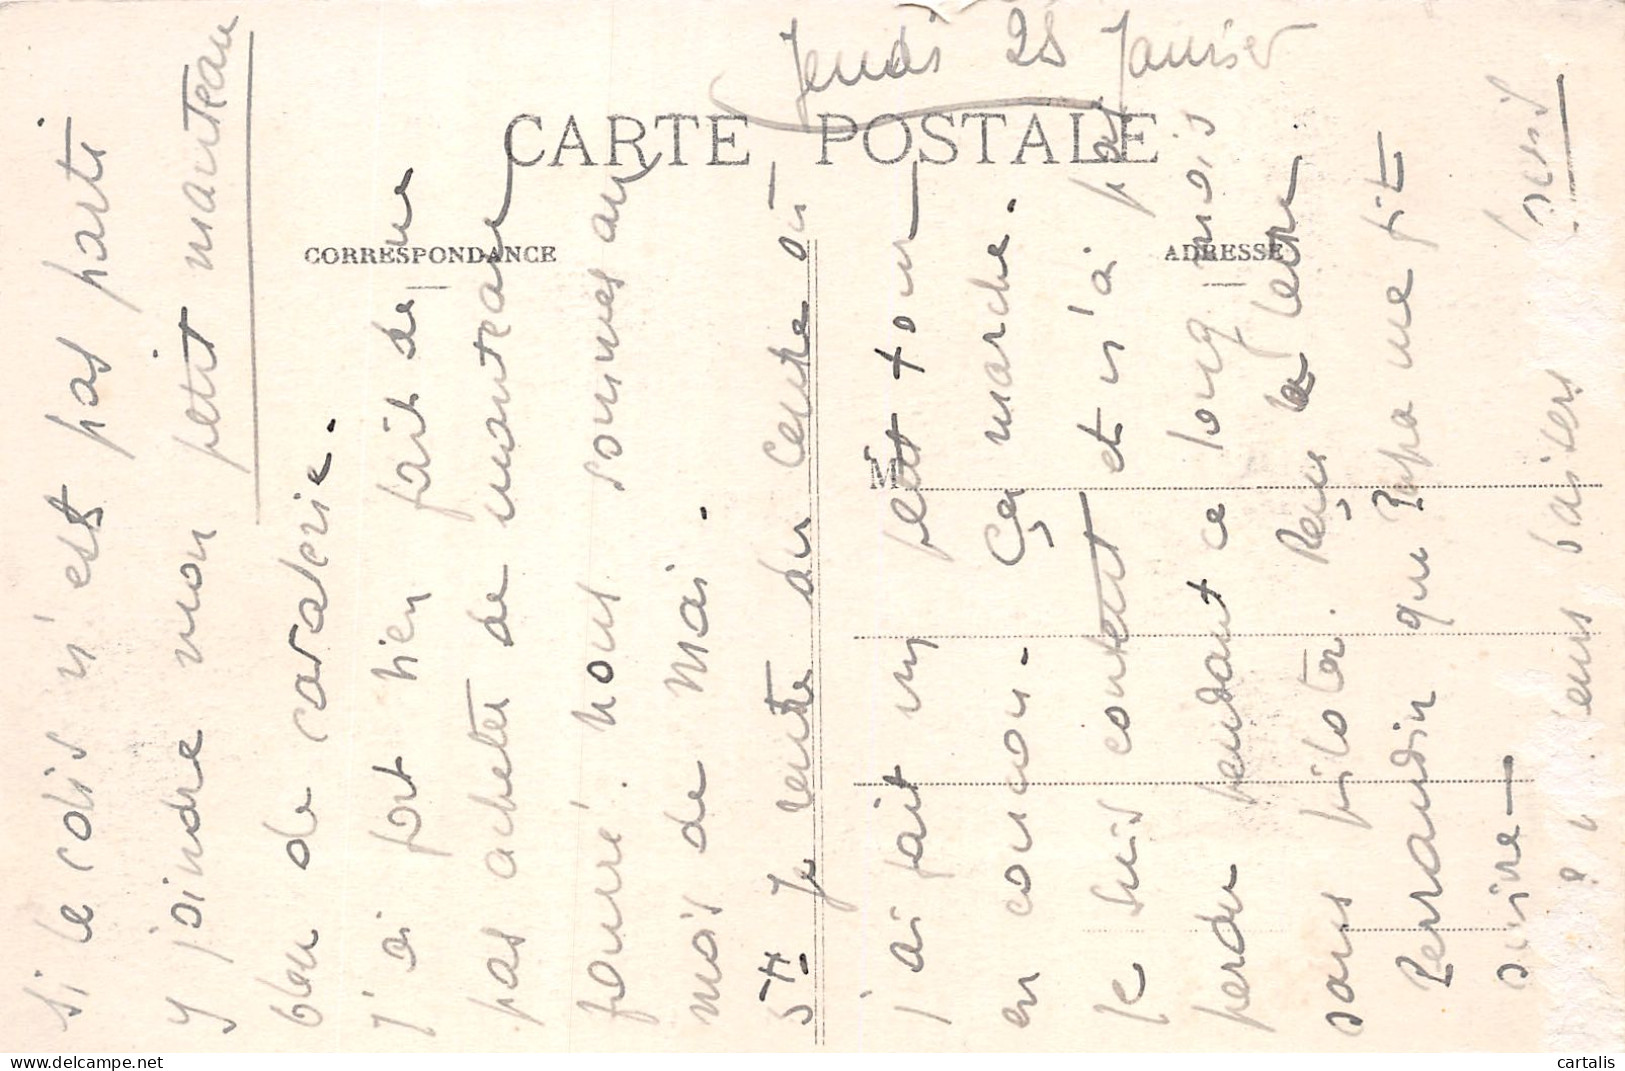 Jeudi 28 Janvier
CARTE POSTALE
CORRESPONDANCE
ADRESSE
M
si le colis n'est pas parti
y joindre mon petit manteau
bleu de cavalerie.
j'ai fort bien fait de ne
pas acheter de manteau
fourré. nous sommes au
mois de Mai.
5H Je rentre du Centre où
j'ai fait un petit tour
en coucou. Ça marche.
Je suis content et n'ai pas
perdu pendant ce long mois
sans piloter. Reçu la lettre
Perraudin que Papa me fit
suivre
baisers
cartalis.eu